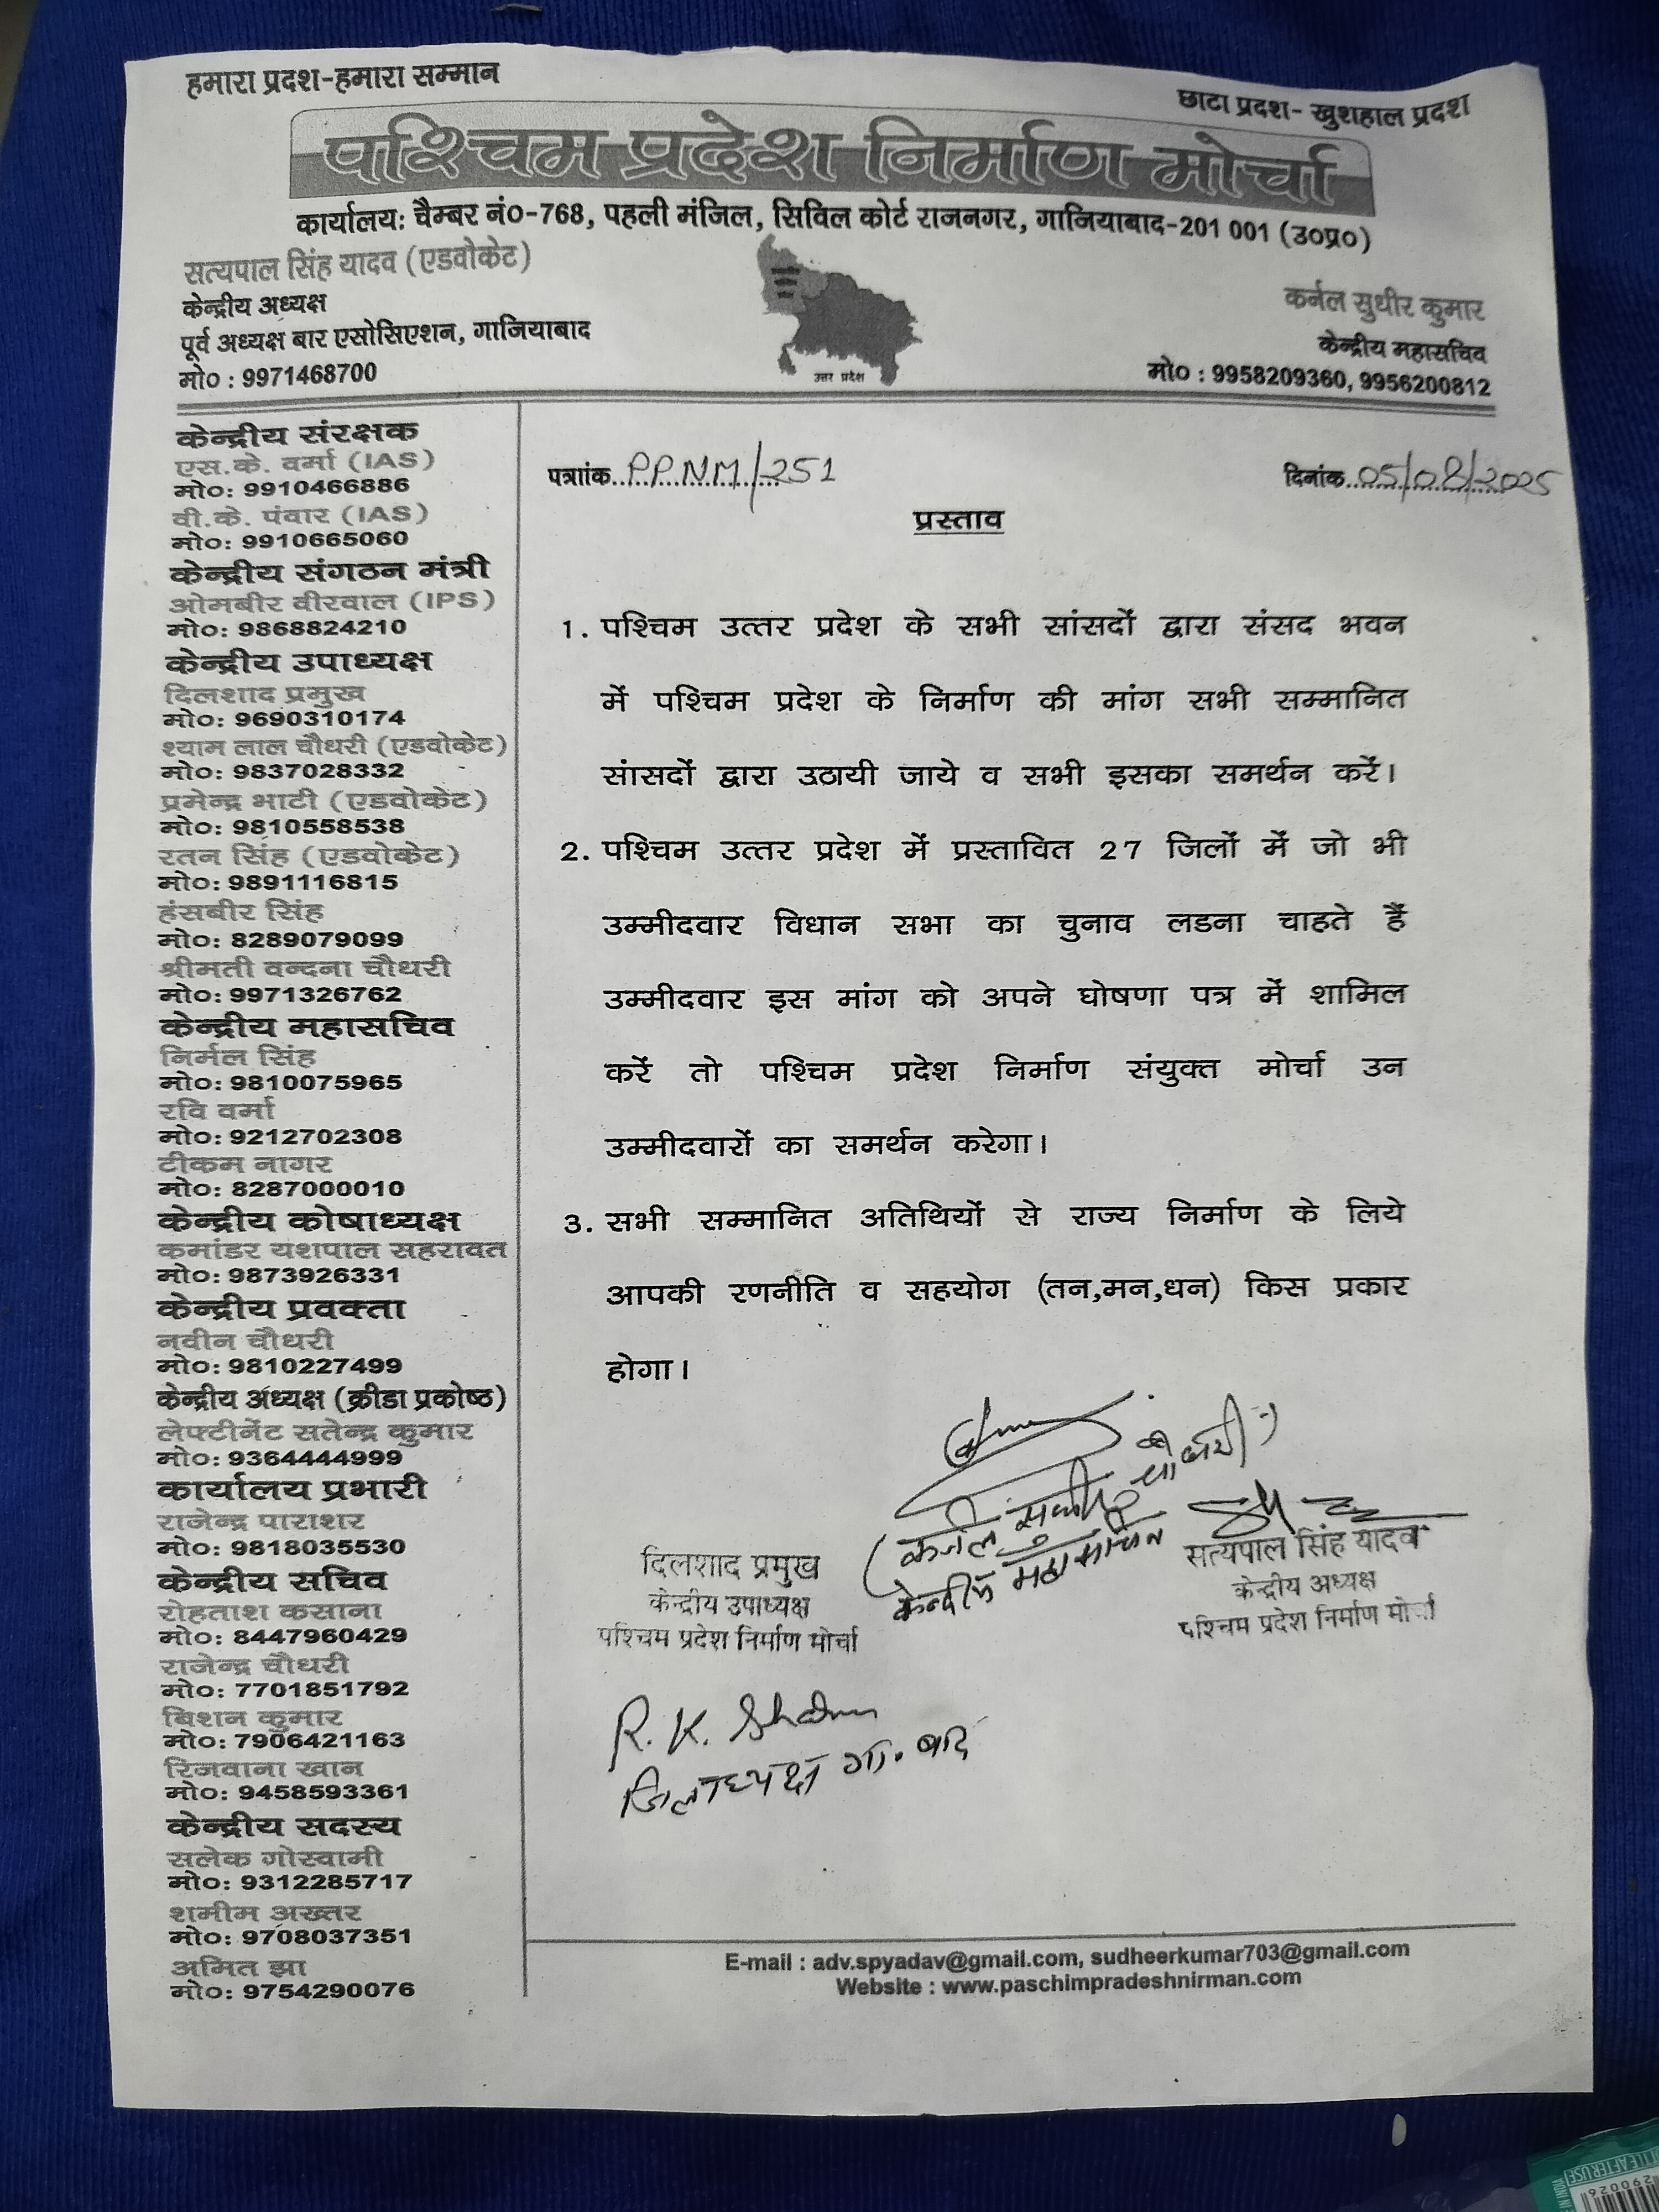 हमारा प्रदश-हमारा सम्मान
छाटा प्रदश- खुशहाल प्रदश
पश्चिम प्रदेश निर्माण मोर्चा
कार्यालयः चैम्बर नं०-768, पहली मंजिल, सिविल कोर्ट राजनगर, गाजियाबाद-201 001 (उ०प्र०)
सत्यपाल सिंह यादव (एडवोकेट)
केन्द्रीय अध्यक्ष
पूर्व अध्यक्ष बार एसोसिएशन, गाजियाबाद
मो० : 9971468700
उत्तर प्रदेश
कर्नल सुधीर कुमार
केन्द्रीय महासचिव
मो० : 9958209360, 9956200812
केन्द्रीय संरक्षक
एस.के. वर्मा (IAS)
मो०: 9910466886
वी.के. पंवार (IAS)
मो०: 9910665060
केन्द्रीय संगठन मंत्री
ओमबीर वीरवाल (IPS)
मो०: 9868824210
केन्द्रीय उपाध्यक्ष
दिलशाद प्रमुख
मो०: 9690310174
श्याम लाल चौधरी (एडवोकेट)
मो०: 9837028332
प्रमेन्द्र भाटी (एडवोकेट)
मो०: 9810558538
रतन सिंह (एडवोकेट)
मो०: 9891116815
हंसबीर सिंह
मो०: 8289079099
श्रीमती वन्दना चौधरी
मो०: 9971326762
केन्द्रीय महासचिव
निर्मल सिंह
मो०: 9810075965
रवि वर्मा
मो०: 9212702308
टीकम नागर
मो०: 8287000010
केन्द्रीय कोषाध्यक्ष
कमांडर यशपाल सहरावत
मो०: 9873926331
केन्द्रीय प्रवक्ता
नवीन चौधरी
मो०: 9810227499
केन्द्रीय अध्यक्ष (क्रीडा प्रकोष्ठ)
लेफ्टीनेंट सतेन्द्र कुमार
मो०: 9364444999
कार्यालय प्रभारी
राजेन्द्र पाराशर
मो०: 9818035530
केन्द्रीय सचिव
रोहताश कसाना
मो०: 8447960429
राजेन्द्र चौधरी
मो०: 7701851792
बिशन कुमार
मो०: 7906421163
रिजवाना खान
मो०: 9458593361
केन्द्रीय सदस्य
सलेक गोस्वामी
मो०: 9312285717
शमीम अख्तर
मो०: 9708037351
अमित झा
मो०: 9754290076
पत्राांक PPNM/251
दिनांक 05/08/2025
प्रस्ताव
1. पश्चिम उत्तर प्रदेश के सभी सांसदों द्वारा संसद भवन
में पश्चिम प्रदेश के निर्माण की मांग सभी सम्मानित
सांसदों द्वारा उठायी जाये व सभी इसका समर्थन करें।
2. पश्चिम उत्तर प्रदेश में प्रस्तावित 27 जिलों में जो भी
उम्मीदवार विधान सभा का चुनाव लडना चाहते हैं
उम्मीदवार इस मांग को अपने घोषणा पत्र में शामिल
करें तो पश्चिम प्रदेश निर्माण संयुक्त मोर्चा उन
उम्मीदवारों का समर्थन करेगा।
3. सभी सम्मानित अतिथियों से राज्य निर्माण के लिये
आपकी रणनीति व सहयोग (तन,मन,धन) किस प्रकार
होगा।
(कर्नल सुधीर चौधरी)
केन्द्रीय महासचिव
दिलशाद प्रमुख
केन्द्रीय उपाध्यक्ष
पश्चिम प्रदेश निर्माण मोर्चा
सत्यपाल सिंह यादव
केन्द्रीय अध्यक्ष
पश्चिम प्रदेश निर्माण मोर्चा
R. K. Sharma
जिलाध्यक्ष गा. बाद
E-mail : adv.spyadav@gmail.com, sudheerkumar703@gmail.com
Website : www.paschimpradeshnirman.com